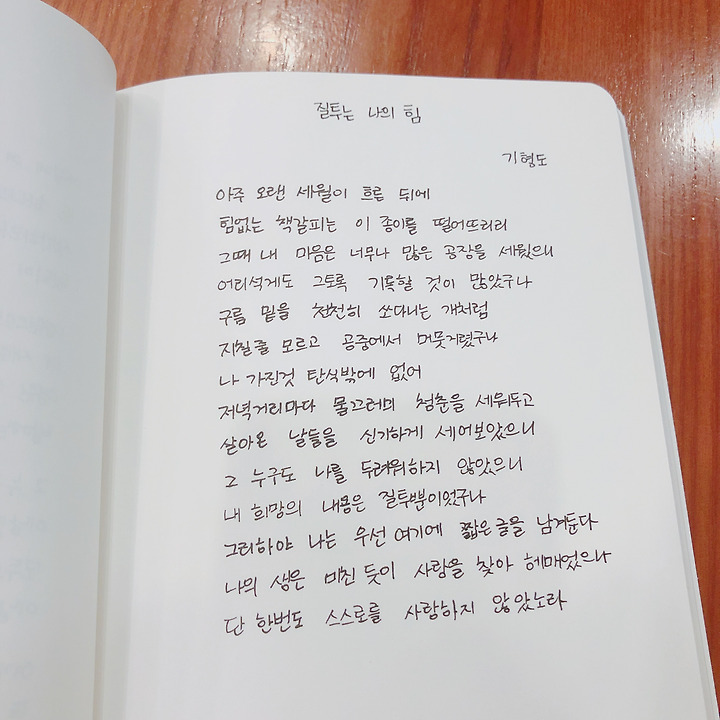 질투는 나의 힘
기형도
아주 오랜 세월이 흐른 뒤에
힘없는 책갈피는 이 종이를 떨어뜨리리
그때 내 마음은 너무나 많은 공장을 세웠으니
어리석게도 그토록 기록할 것이 많았구나
구름 밑을 천천히 쏘다니는 개처럼
지칠줄 모르고 공중에서 머뭇거렸구나
나 가진것 탄식밖에 없어
저녁거리마다 물끄러미 청춘을 세워두고
살아온 날들을 신기하게 세어보았으니
그 누구도 나를 두려워하지 않았으니
내 희망의 내용은 질투뿐이었구나
그리하야 나는 우선 여기에 짧은 글을 남겨둔다
나의 생은 미친 듯이 사랑을 찾아 헤매었으나
단 한번도 스스로를 사랑하지 않았노라